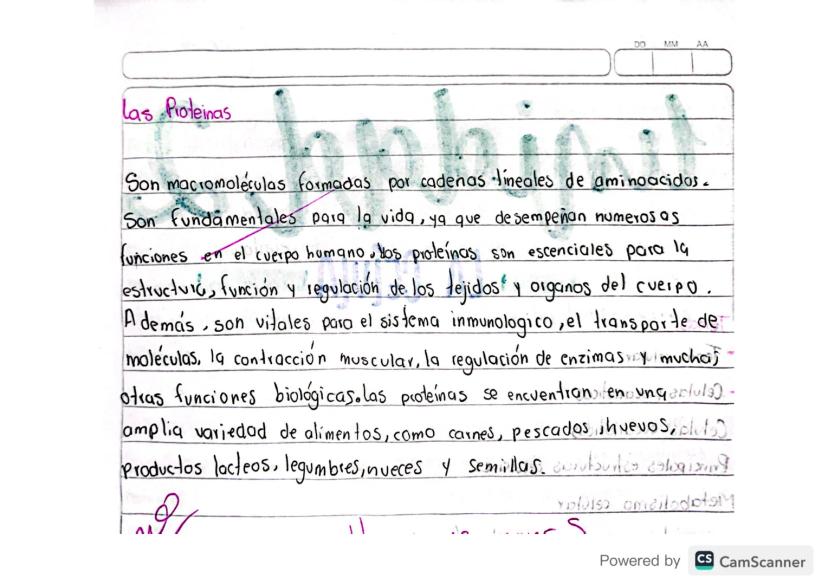 DD MM AA
las Proteinas
Son macromoléculas formadas por cadenas lineales de aminoacidos.
Son fundamentales para la vida, ya que desempeñan numerosas
funciones en el cuerpo humano. los proteínas son escenciales para la
estructura, función y regulación de los tejidos y organos del cuerpo.
Además, son vitales para el sistema inmunologico, el transporte de
moléculas, la contracción muscular, la regulación de enzimas y muchas
otras funciones biológicas. las proteínas se encuentran en una
amplia variedad de alimentos, como carnes, pescados, huevos,
productos lacteos, legumbres, nueces y semillas.
Powered by CS CamScanner